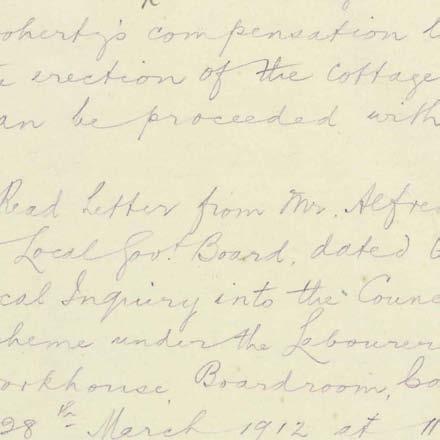 oherty's compensation
erection of the cottage
an be proceeded with
Read Letter from Mr. Alfre
Local Govt. Board, dated
cal Inquiry into the Counc
cheme under the Labourer
orkhouse Boardroom,
28th March 1912 at 11